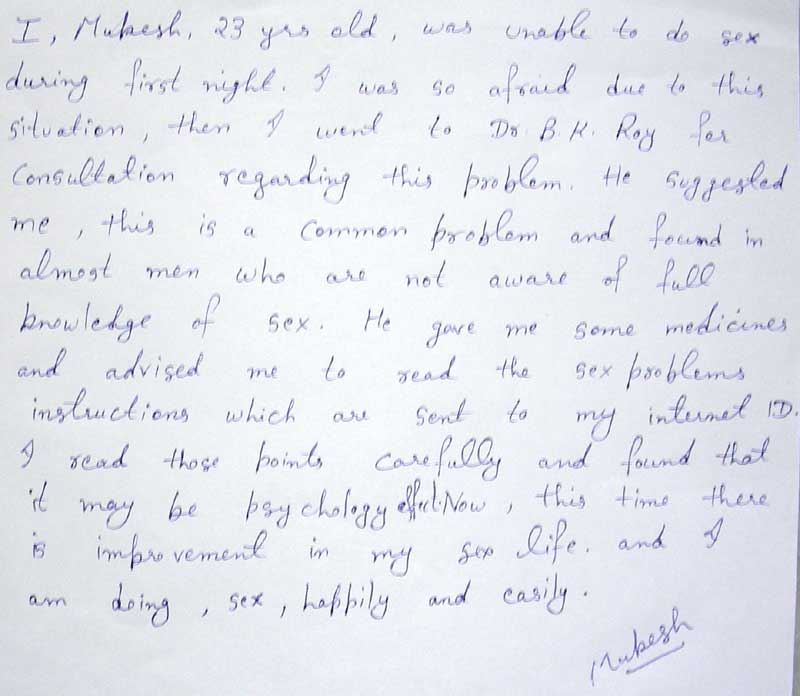 I, Mukesh, 23 yrs old, was unable to do sex
during first night. I was so afraid due to this
situation, then I went to Dr. B. K. Roy for
Consultation regarding this problem. He suggested
me, this is a common problem and found in
almost men who are not aware of full
knowledge of sex. He gave me some medicines
and advised me to read the sex problems
instructions which are sent to my internet ID.
I read those points carefully and found that
it may be psychology effect. Now, this time there
is improvement in my sex life. and I
am doing, sex, happily and easily.
Mukesh